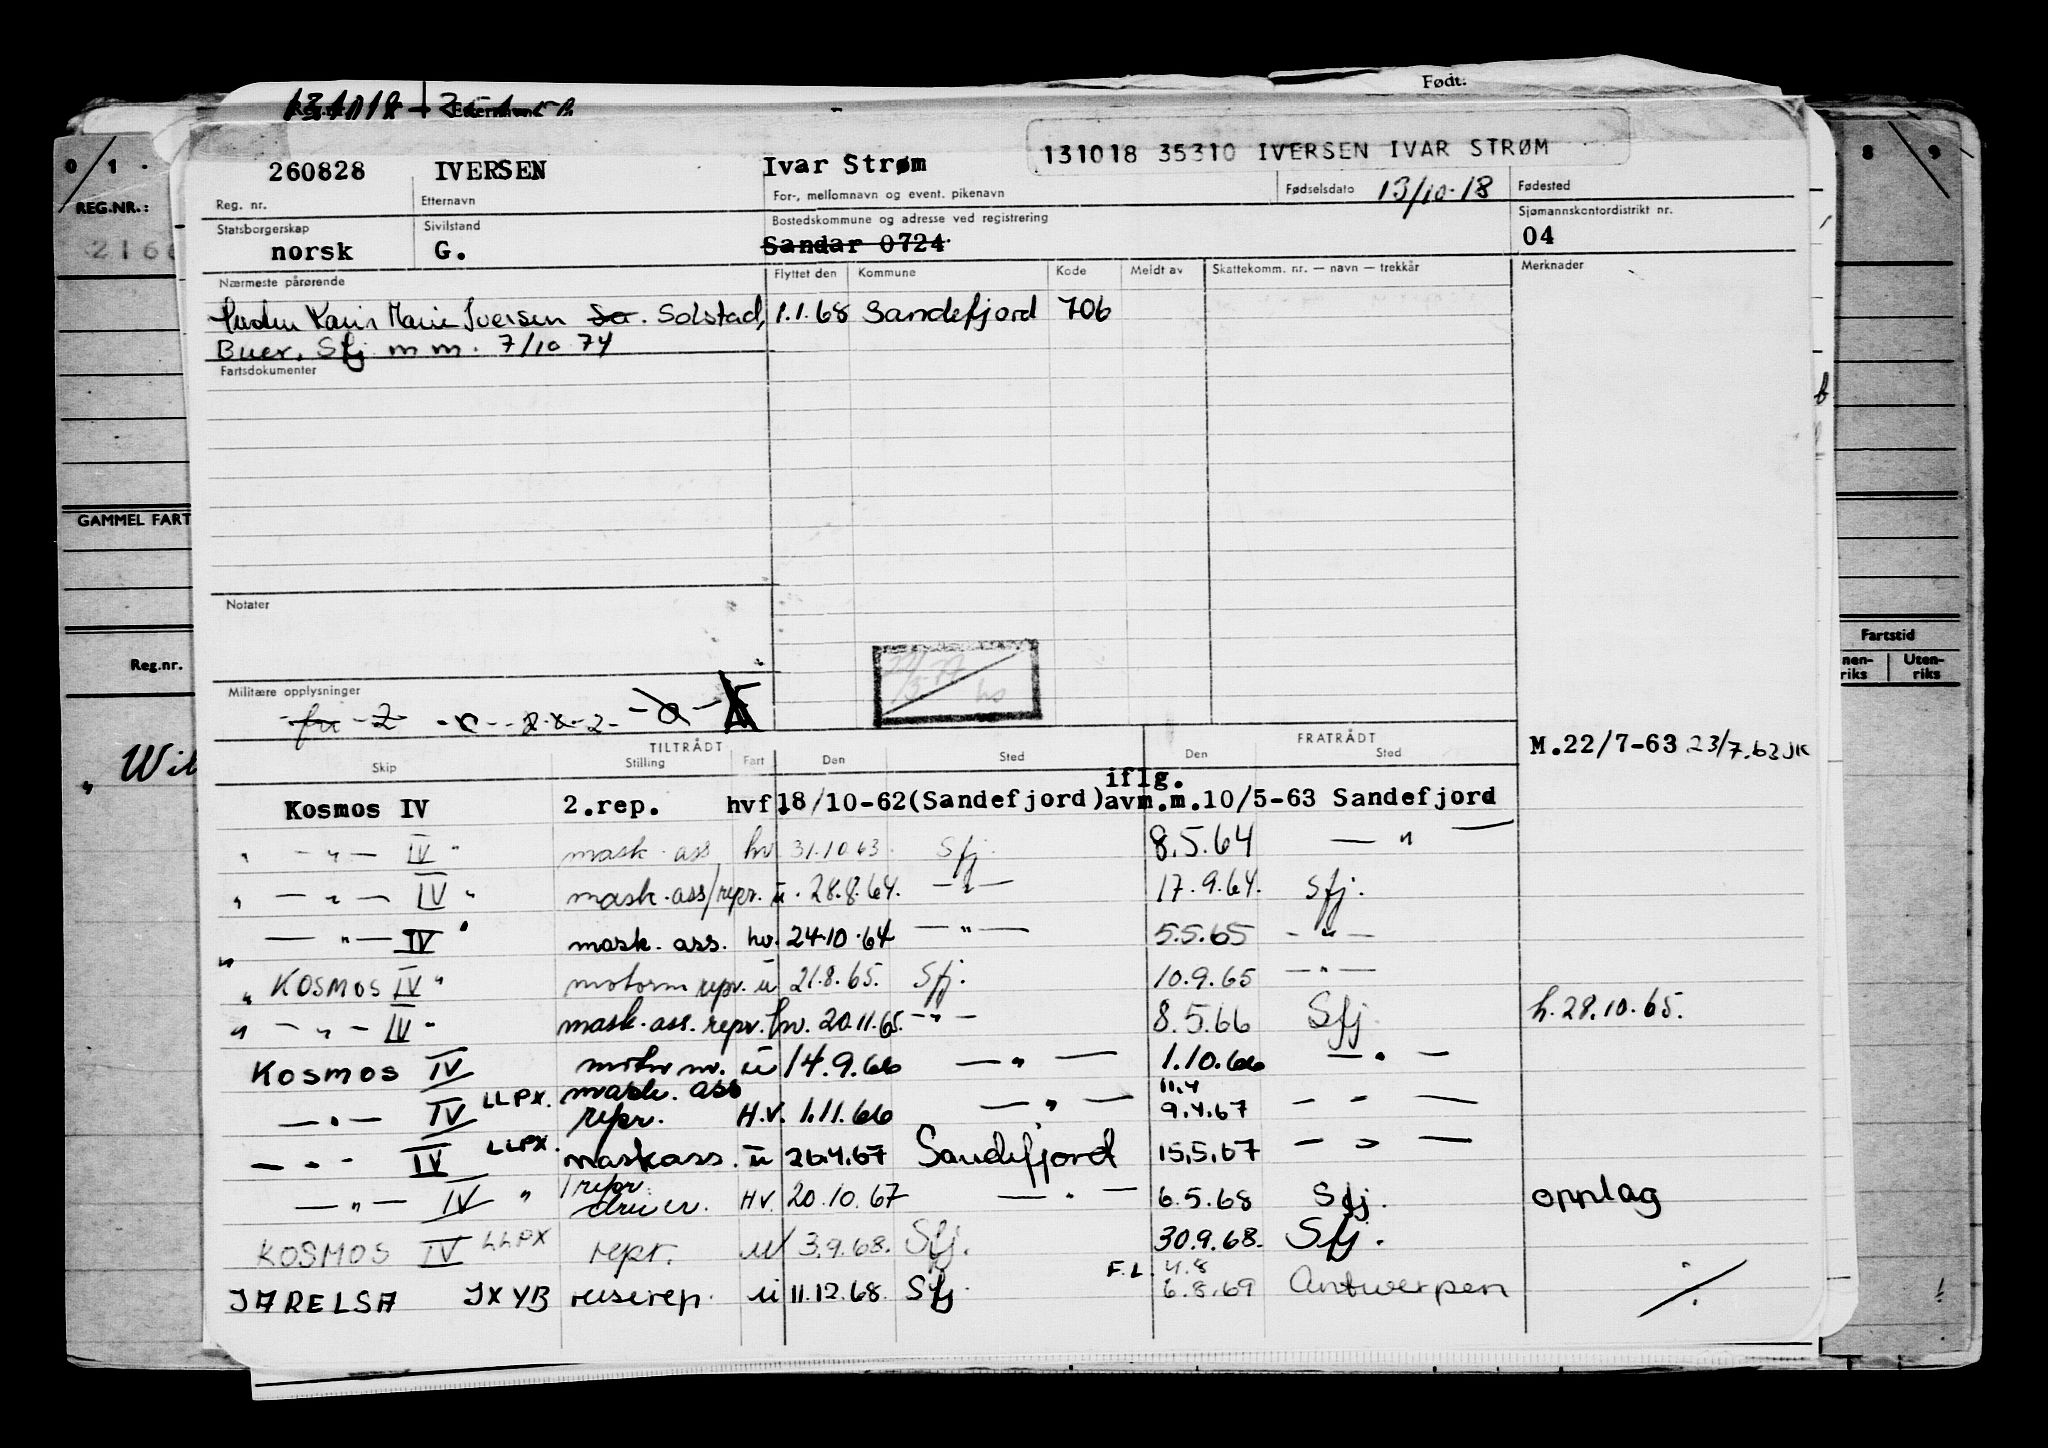 Født:
131018
260828 IVERSEN Ivar Strøm 131018 35310 IVERSEN IVAR STRØM
Reg. nr. Etternavn For-, mellomnavn og event. pikenavn Fødselsdato 13/10-18 Fødested
Statsborgerskap Sivilstand Bostedskommune og adresse ved registrering Sjømannskontordistrikt nr.
norsk G. Sandar 0724 04
Nærmeste pårørende Flyttet den Kommune Kode Meldt av Skattekomm. nr. — navn — trekkår Merknader
Karin Marie Iversen Solstad, 1.1.68 Sandefjord 706
Buer, Sfj m m. 7/10 74
Fartsdokumenter
Notater
Militære opplysninger
TILTRÅDT FRATRÅDT
M.22/7-63 23/7.63 JK
Skip Stilling Fart Den Sted Den Sted
iflg.
Kosmos IV 2.rep. hvf. 18/10-62 (Sandefjord) avm.m. 10/5-63 Sandefjord
" — " — IV " mask. ass hv 31.10.63. Sfj. 8.5.64 — " —
" — " — IV " mask. ass/repr. u. 28.8.64. — " — 17.9.64. Sfj.
" — " — IV " mask. ass. hv. 24.10.64 — " — 5.5.65 — " —
" KOSMOS IV " motorm repr. u 21.8.65. Sfj. 10.9.65 — " —
" — " — IV " mask. ass. repr. hv. 20.11.65. — " — 8.5.66 Sfj. h. 28.10.65.
KOSMOS IV u 14.9.66 — " — 1.10.66 — " —
mask. ass 11.4
— " — IV LLPX. repr. H.V. 1.11.66 — " — 9.4.67 — " —
— " — IV LLPX. maskass. u 26.4.67 Sandefjord 15.5.67 — " —
repr.
— " — IV " H.V. 20.10.67 — " — 6.5.68 Sfj. opplag
KOSMOS IV LLPX repr. u 3.9.68. Sfj. 30.9.68. Sfj.
F.L. 4.8
JARELSA JXYB reiserep. u 11.12.68. Sfj. 6.8.69 Antwerpen ./.
0 1
REG.NR.:
GAMMEL FART
Reg.nr.
" Wil
8 9
Fartstid
nen-riks Uten-riks